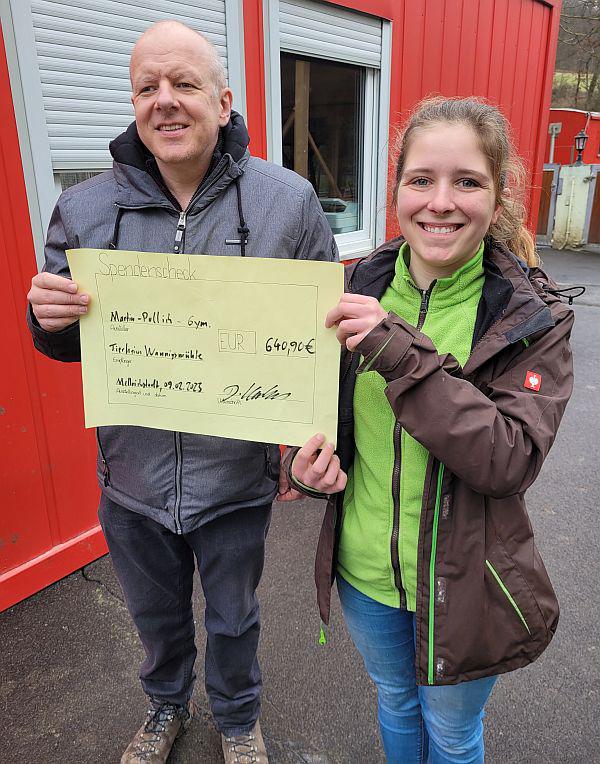 Spendenscheck
Martin-Pollich-Gym.
Aussteller
EUR 640,90€
Tierheim Wannigsmühle
Empfänger
Mellrichstadt, 09.02.2023
Ausstellungsort und datum
Unterschrift